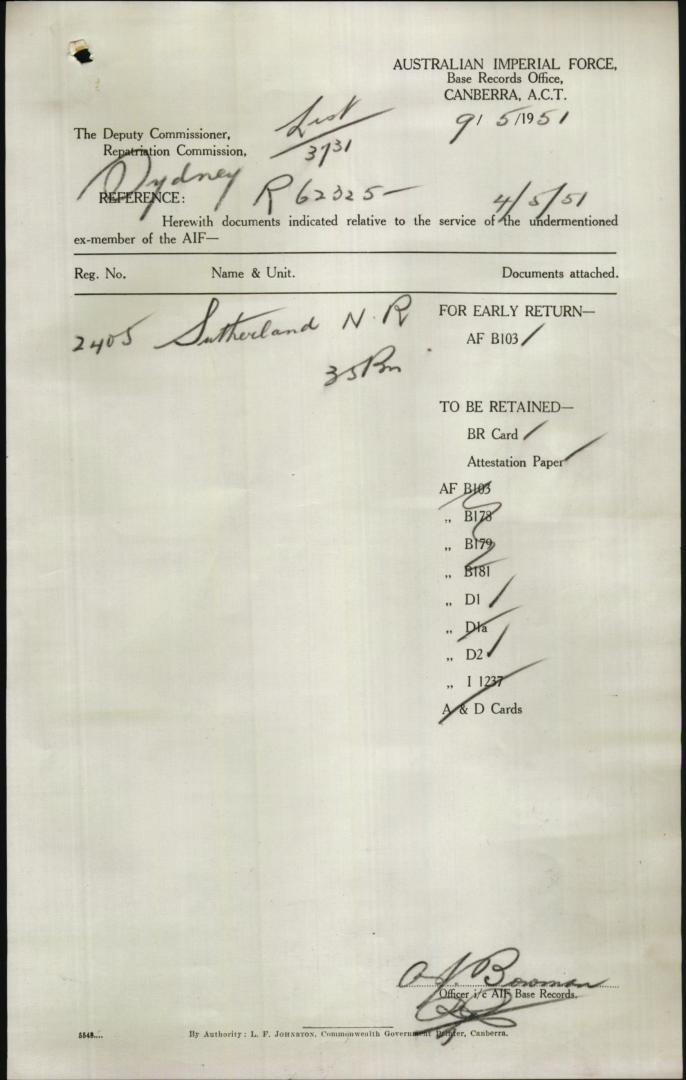 AUSTRALIAN IMPERIAL FORCE,
Base Records Office,
CANBERRA, A.C.T.
9/5/1951
List
3731
The Deputy Commissioner,
Repatriation Commission,
Sydney
REFERENCE: R 62325- 4/5/51
Herewith documents indicated relative to the service of the undermentioned
ex-member of the AIF—
Reg. No. Name & Unit. Documents attached.
2405 Sutherland N. R
35 Bn
FOR EARLY RETURN—
AF B103
TO BE RETAINED—
BR Card
Attestation Paper
AF B103
„ B178
„ B179
„ B181
„ D1
„ D1a
„ D2
„ I 1237
A & D Cards
Bowman
Officer i/c AIF Base Records.
5548....
By Authority: L. F. JOHNSTON, Commonwealth Government Printer, Canberra.